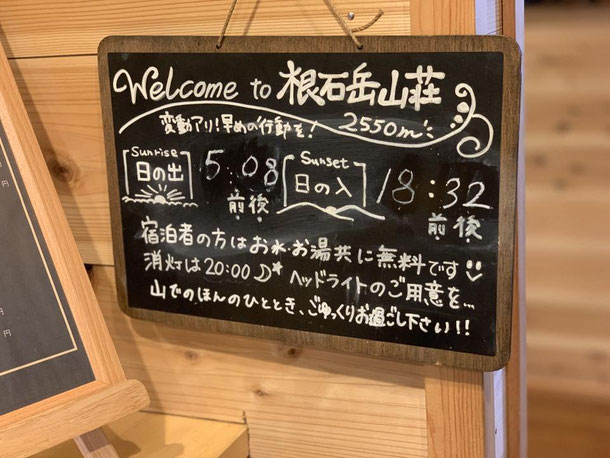 Welcome to 根石岳山荘
変動アリ!早めの行動を! 2550m
Sunrise 5:08 Sunset 18:32
日の出 前後 日の入 前後
宿泊者の方はお水・お湯共に無料です
消灯は20:00 ヘッドライトのご用意を...
山でのほんのひととき、ごゆっくりお過ごし下さい!!
円
円
円